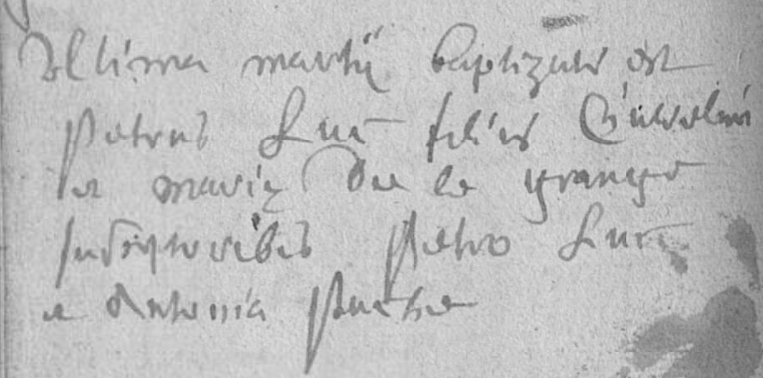 Ultima martii baptizatus est
Petrus Luc filius
et mariæ de la grange
susceptoribus Petro Luc
et Antonia